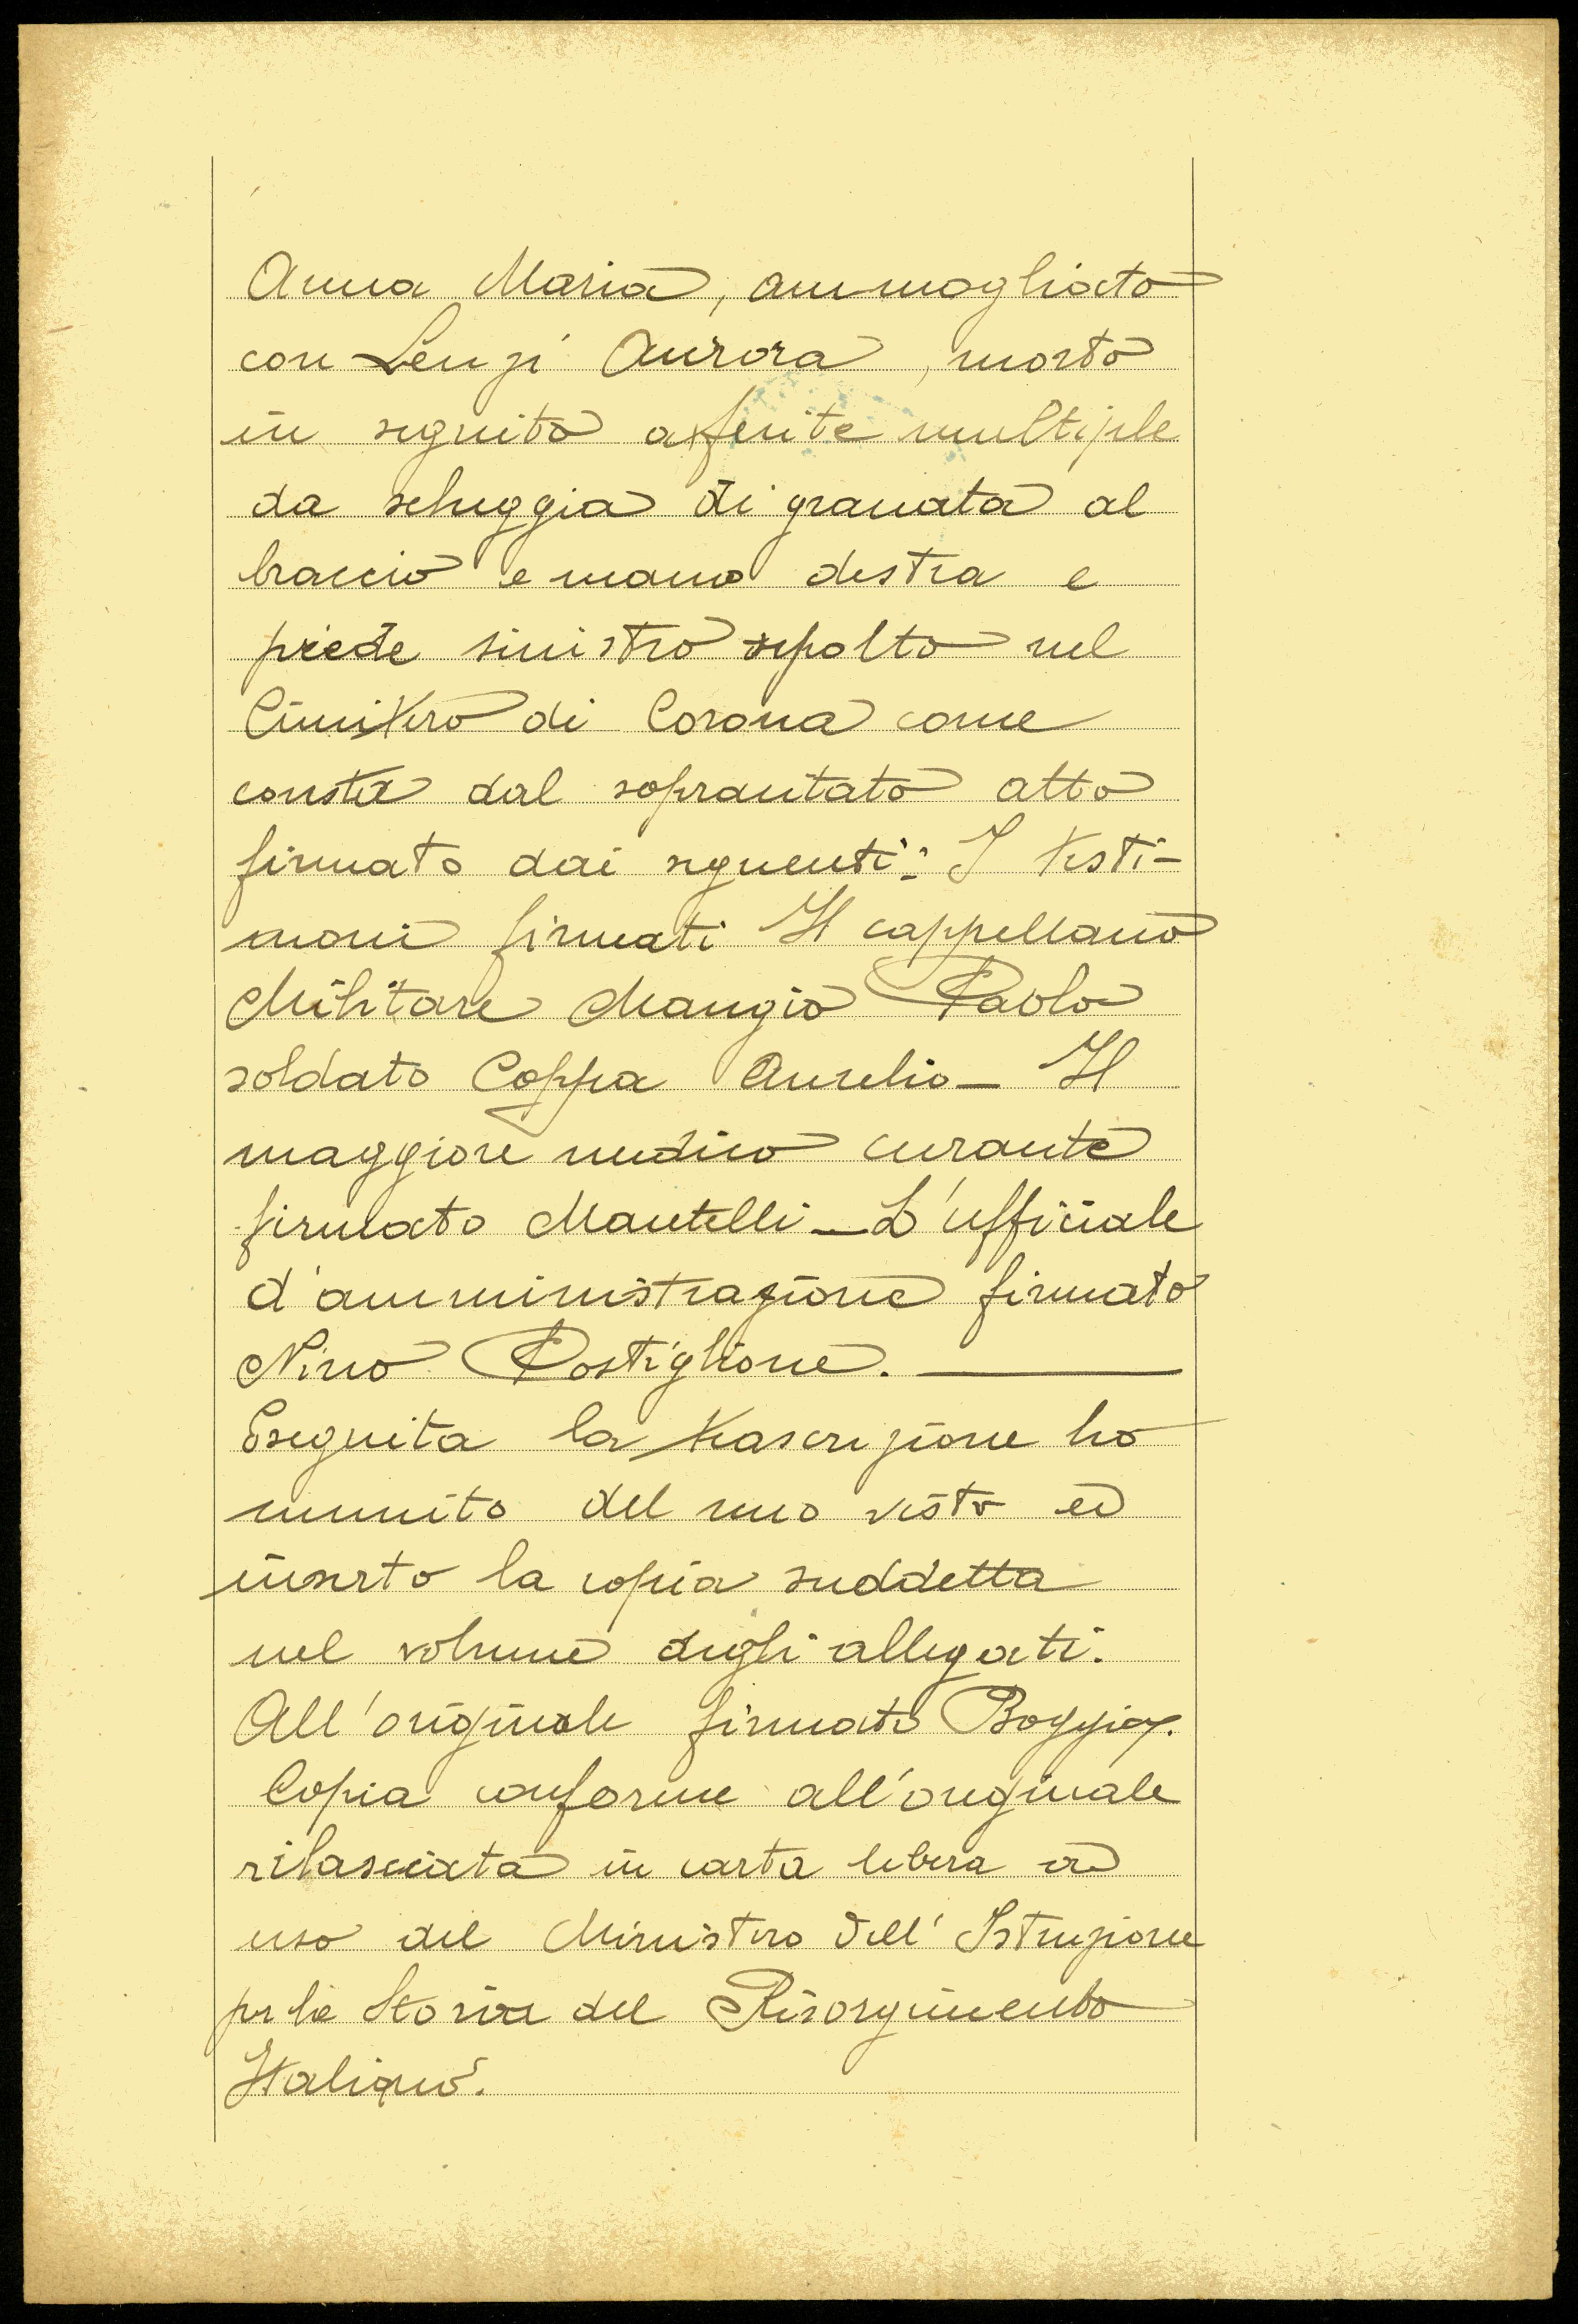 Anna Maria, ammogliato
con Lenzi Aurora, morto
in seguito a ferite multiple
da scheggia di granata al
braccio e mano destra e
piede sinistro sepolto nel
Cimitero di Corona come
consta dal sopracitato atto
firmato dai seguenti: I testi-
moni firmati Il cappellano
Militare Mangio Paolo
soldato Coppa Aurelio – Il
maggiore medico curante
firmato Mantelli – L'ufficiale
d'amministrazione firmato
Nino Postiglione.
Eseguita la trascrizione ho
munito del mio visto ed
inserto la copia suddetta
nel volume degli allegati.
All'originale firmato Boggia.
Copia conforme all'originale
rilasciata in carta libera ad
uso del Ministero dell'Istruzione
per la Storia del Risorgimento
Italiano.